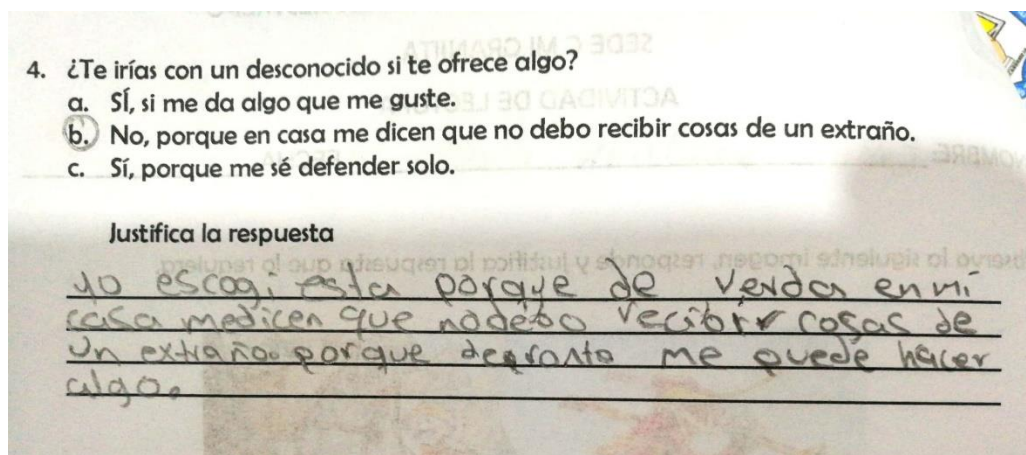 4. ¿Te irías con un desconocido si te ofrece algo?
a. SÍ, si me da algo que me guste.
b. No, porque en casa me dicen que no debo recibir cosas de un extraño.
c. Sí, porque me sé defender solo.
Justifica la respuesta
yo escogi esta porque de verda en mi
casa medicen que nodebo recibir cosas de
un extraño. porque depronto me puede hacer
algo.